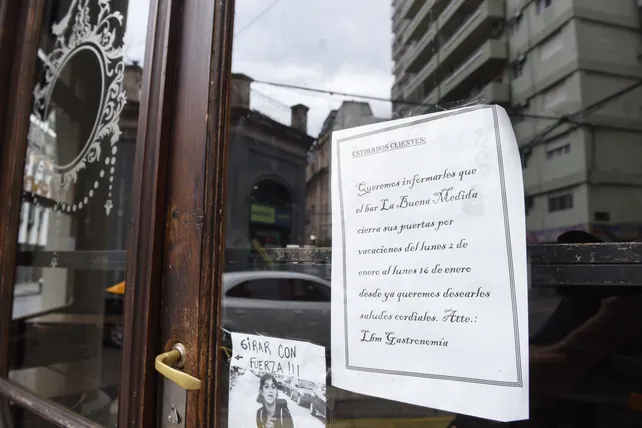 ESTIMADOS CLIENTES:
Queremos informarles que
el bar La Buena Medida
cierra sus puertas por
vacaciones del lunes 2 de
enero al lunes 16 de enero
desde ya queremos desearles
saludos cordiales. Atte.:
Lhm Gastronomía
GIRAR CON
FUERZA!!!